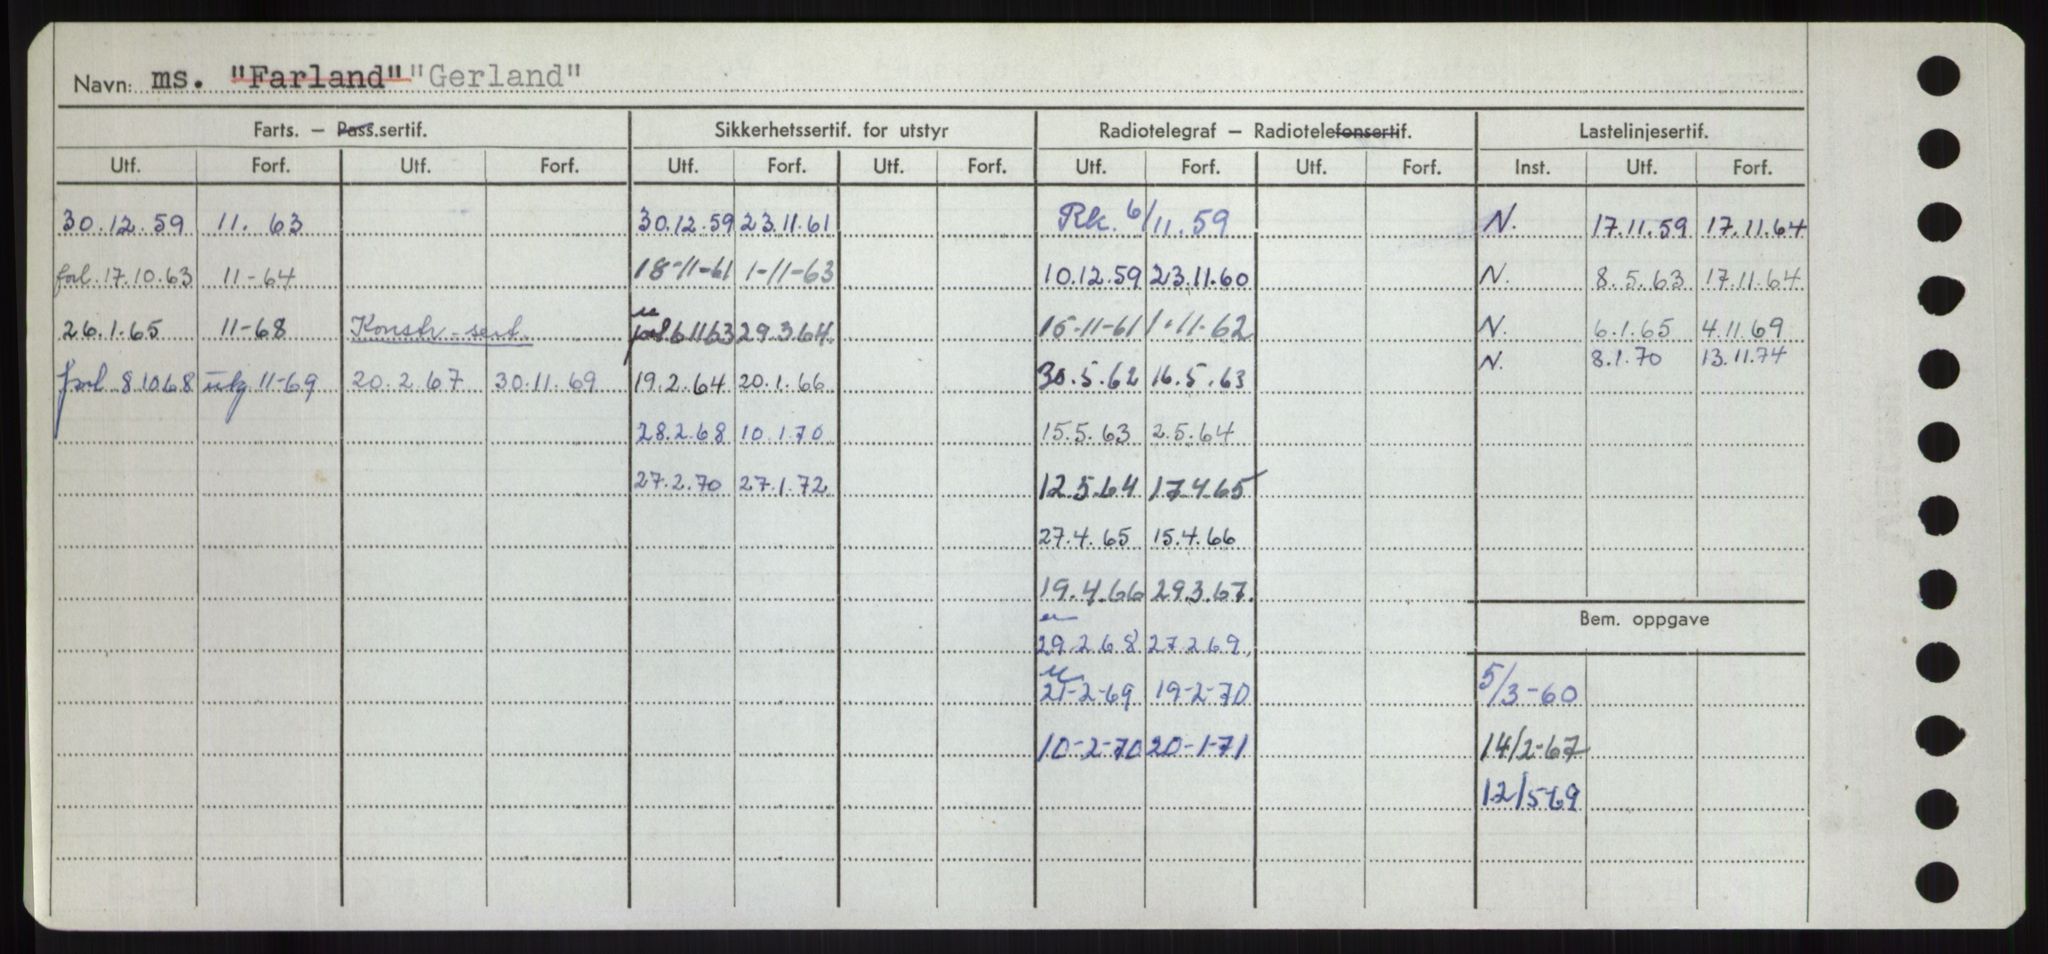 Navn: ms. "Farland" "Gerland"
Farts. — Pass.sertif. Sikkerhetssertif. for utstyr Radiotelegraf — Radiotelefonsertif. Lastelinjesertif.
Utf. Forf. Utf. Forf. Utf. Forf. Utf. Forf. Utf. Forf. Utf. Forf. Inst. Utf. Forf.
30.12.59 11.63 30.12.59 23.11.61 Rk. 6/11.59 N. 17.11.59 17.11.64
forl. 17.10.63 11-64 18-11-61 1-11-63 10.12.59 23.11.60 N. 8.5.63 17.11.64
26.1.65 11-68 Konstr-sert. forl 6 11 63 29.3.64. 15-11-61 1.11.62 N. 6.1.65 4.11.69
N. 8.1.70 13.11.74
forl. 8.10.68 utg 11-69 20.2.67 30.11.69 19.2.64 20.1.66 30.5.62 16.5.63
28.2.68 10.1.70 15.5.63 2.5.64
27.2.70 27.1.72 12.5.64 17.4.65
27.4.65 15.4.66
19.4.66 29.3.67.
Bem. oppgave
29.2.68 27.2.69.
21-2-69 19-2-70 5/3-60
10-2-70 20-1-71 14/2-67
12/5-69